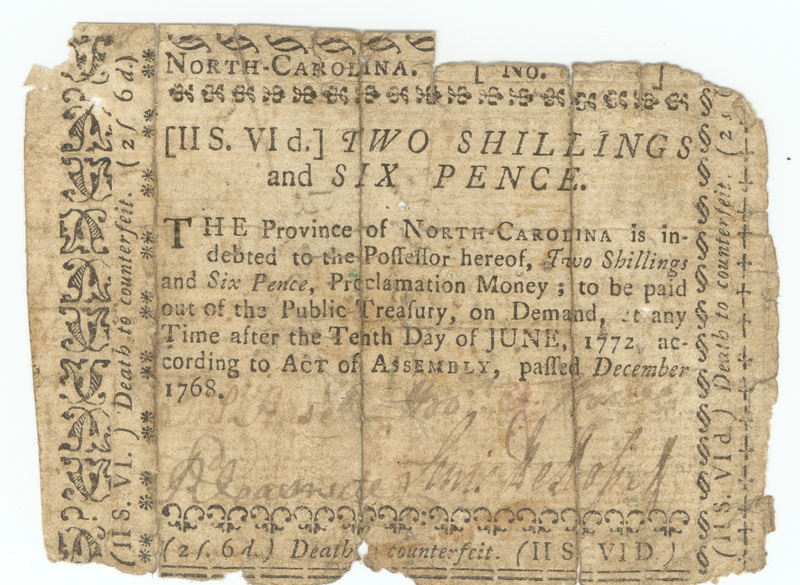 NORTH-CAROLINA. [ No. ]
[II S. VI d.] TWO SHILLINGS
and SIX PENCE.
THE Province of NORTH-CAROLINA is in-
debted to the Poſſeſſor hereof, Two Shillings
and Six Pence, Proclamation Money; to be paid
out of the Public Treaſury, on Demand, at any
Time after the Tenth Day of JUNE, 1772, ac-
cording to ACT of ASSEMBLY, paſſed December
1768.
(2ſ. 6d.) Death counterfeit. (II S. VI D.)
(II S. VI.) Death to counterfeit. (2ſ. 6d.)
(II S. VI d.) Death to counterfeit. (2 ſ